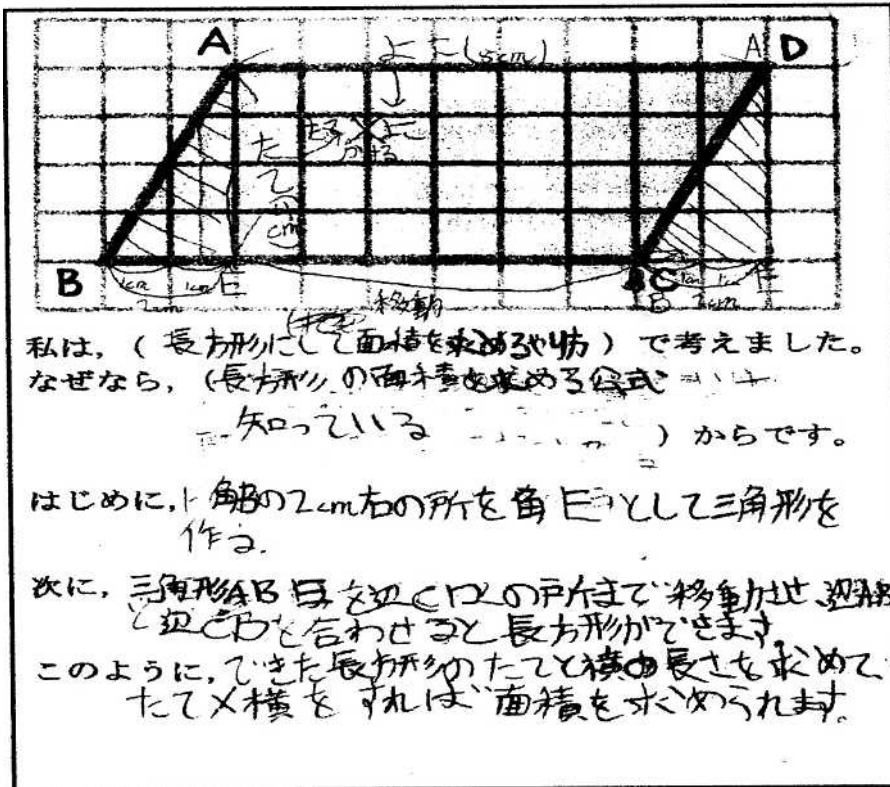 A よこ(8cm) A D
↓
たて×よこ
かける
たて(4cm)
B 1cm 1cm E C 1cm 1cm E
2cm B 2cm
移動
私は,(長方形にして面積を求めるやり方)で考えました。
なぜなら,(長方形の面積を求める公式
知っている )からです。
はじめに, 角Bの2cm右の所を角Eとして三角形を
作る.
次に, 三角形ABEを辺CDの所まで移動させ、辺AB
と辺CDを合わせると長方形ができます。
このように,できた長方形のたてと横の長さを求めて、
たて×横をすれば面積を求められます。